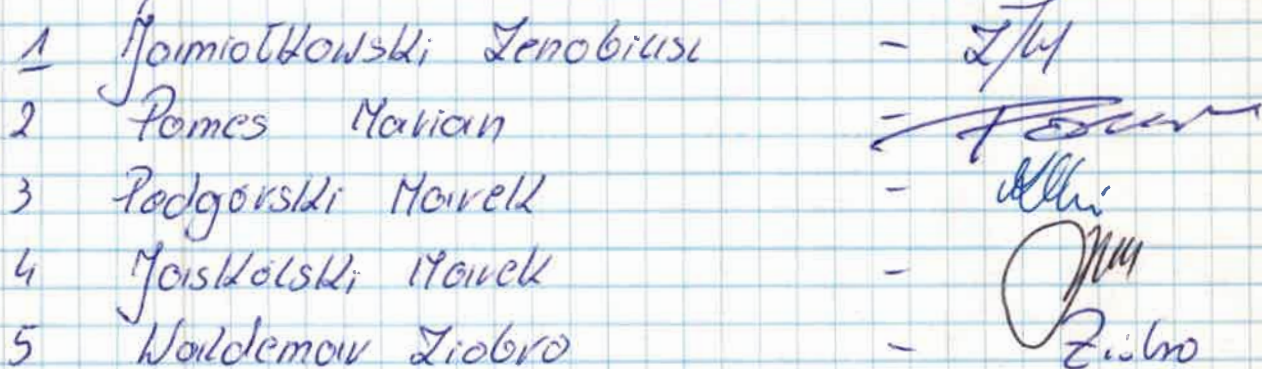 1 Jamiołkowski Zenobiusz -
2 Pomes Marian -
3 Podgórski Marek -
4 Jaskólski Marek -
5 Waldemar Ziobro - Ziobro